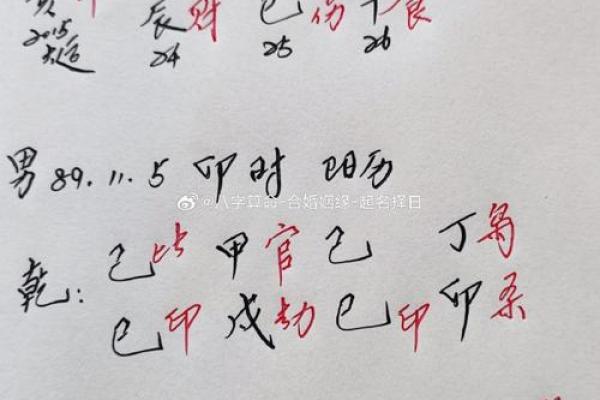 辰财 巳伤 午食
2015 24 25 26
大运
男 89.11.5 卯时 阳历
@八字算命-合婚姻缘-起名择日
己比 甲官 己 丁枭
乾:
巳印 戌劫 巳印 卯杀